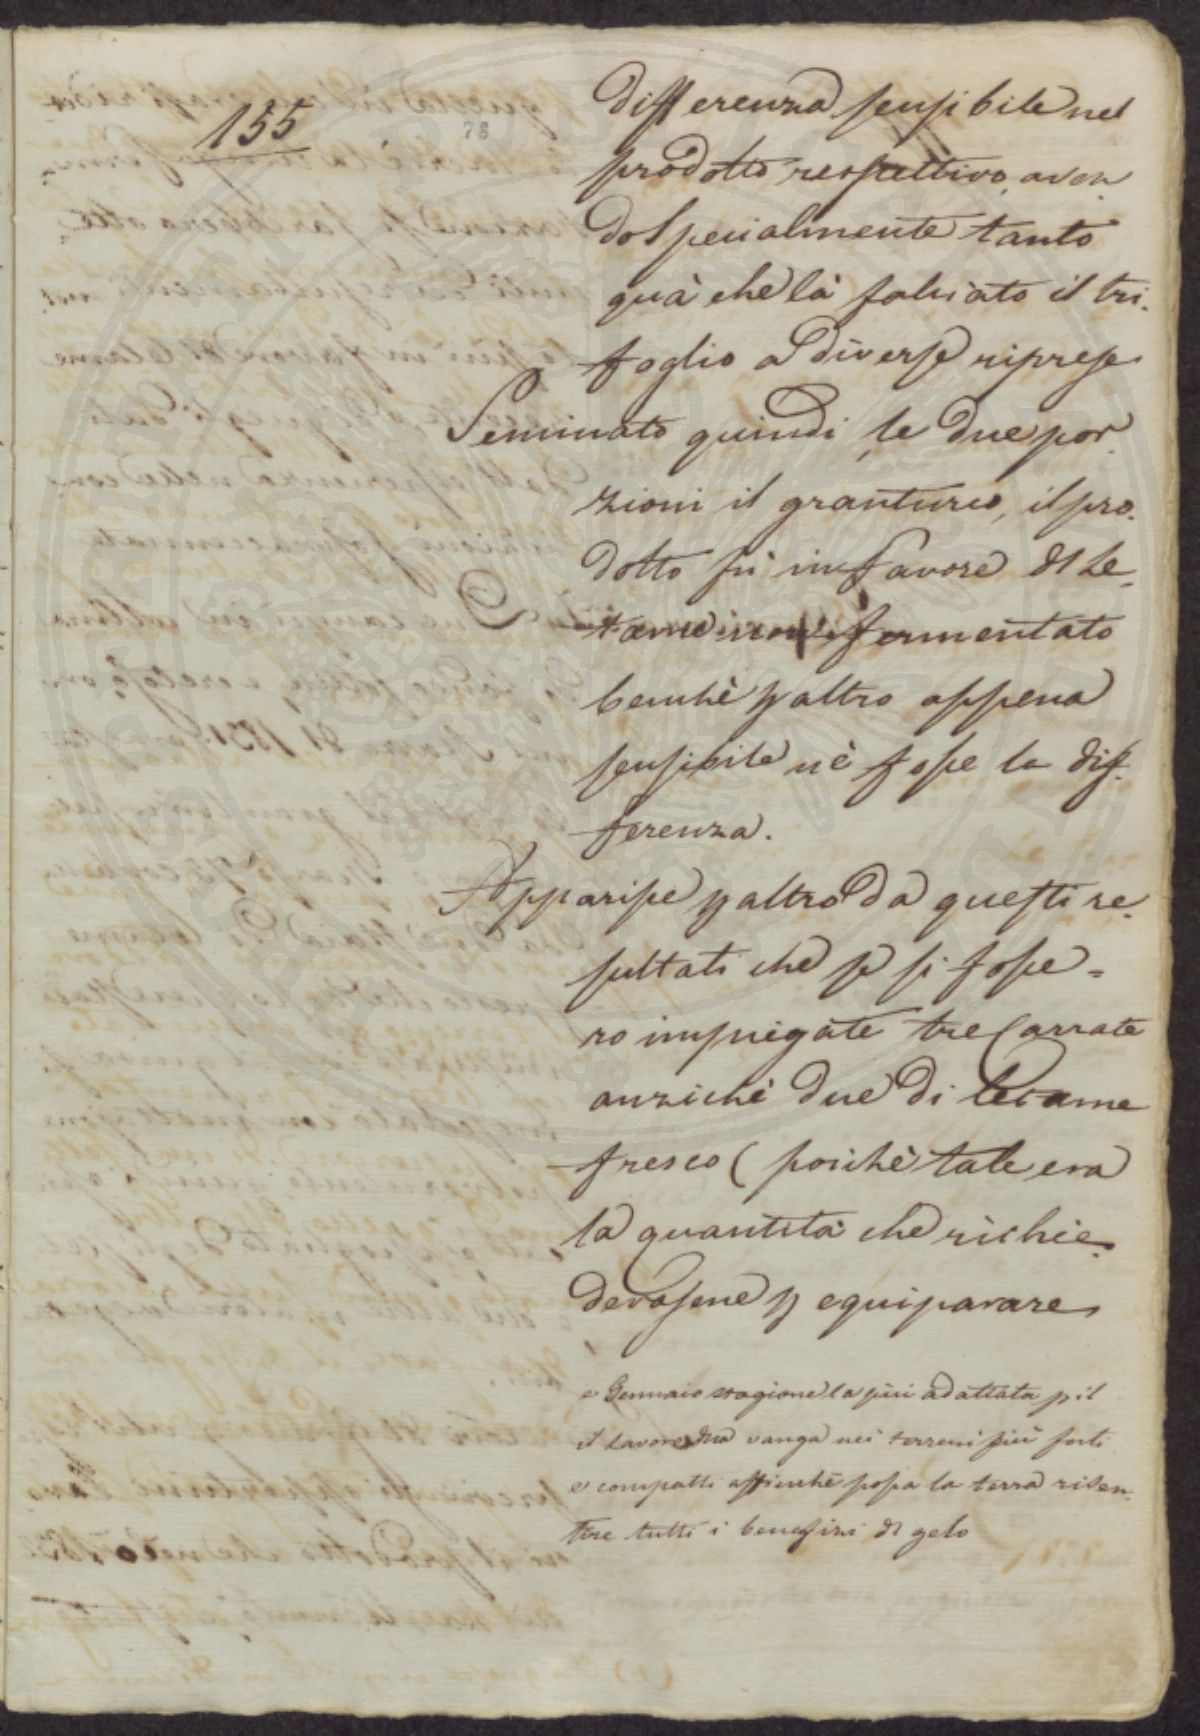 155
78
differenza sensibile nel
prodotto respettivo, aven
do specialmente tanto
quà che là falciato il tri-
foglio a diverse riprese
Seminato quindi le due por-
zioni il granturco, il pro-
dotto fù in favore di Le-
tame non fermentato
benchè p altro appena
sensibile nè fosse la dif-
ferenza.
Apparisse p altro da questi re-
sultati che se si fosse=
ro impiegate tre Carrate
anzichè due di letame
fresco (poichè tale era
la quantità che richie-
devasene p equiparare
e Gennaio stagione la più adattata p il
il lavoro della vanga nei terreni più forti
e compatti affinchè possa la terra risen-
tire tutti i benefizi di gelo